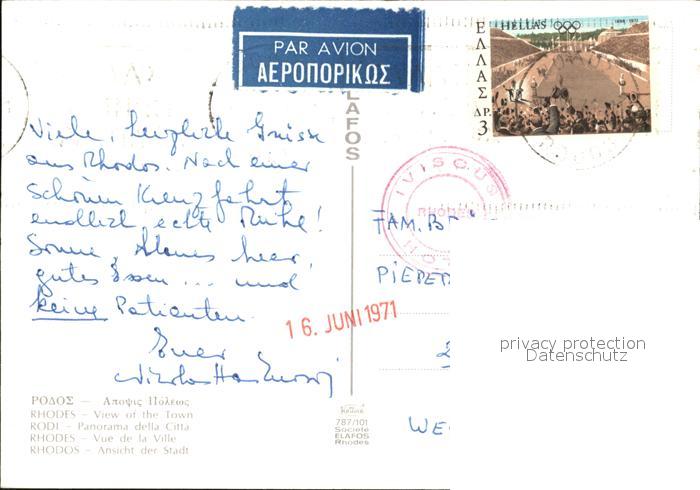 PAR AVION
ΑΕΡΟΠΟΡΙΚΩΣ
HELLAS
1896-1971
ΕΛΛΑΣ
ΔΡ.
3
ELAFOS
IVISCUS
RHODES
HOT
Viele, herzliche Grüsse
aus Rhodos. Nach einer
schönen Kreuzfahrt
endlich echte Ruhe!
Sonne, blaues Meer,
gutes Essen ... und
keine Patienten.
Euer
FAM. B
PIEPE
WE
16. JUNI 1971
privacy protection
Datenschutz
ΡΟΔΟΣ — Αποψις Πόλεως
RHODES – View of the Town
RODI – Panorama della Citta
RHODES – Vue de la Ville
RHODOS – Ansicht der Stadt
787/101
Société
ELAFOS
Rhodes